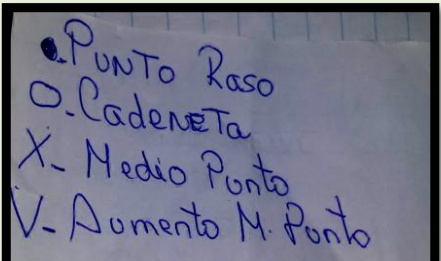 ●.Punto Raso
O.Cadeneta
X- Medio Punto
V- Aumento M. Punto